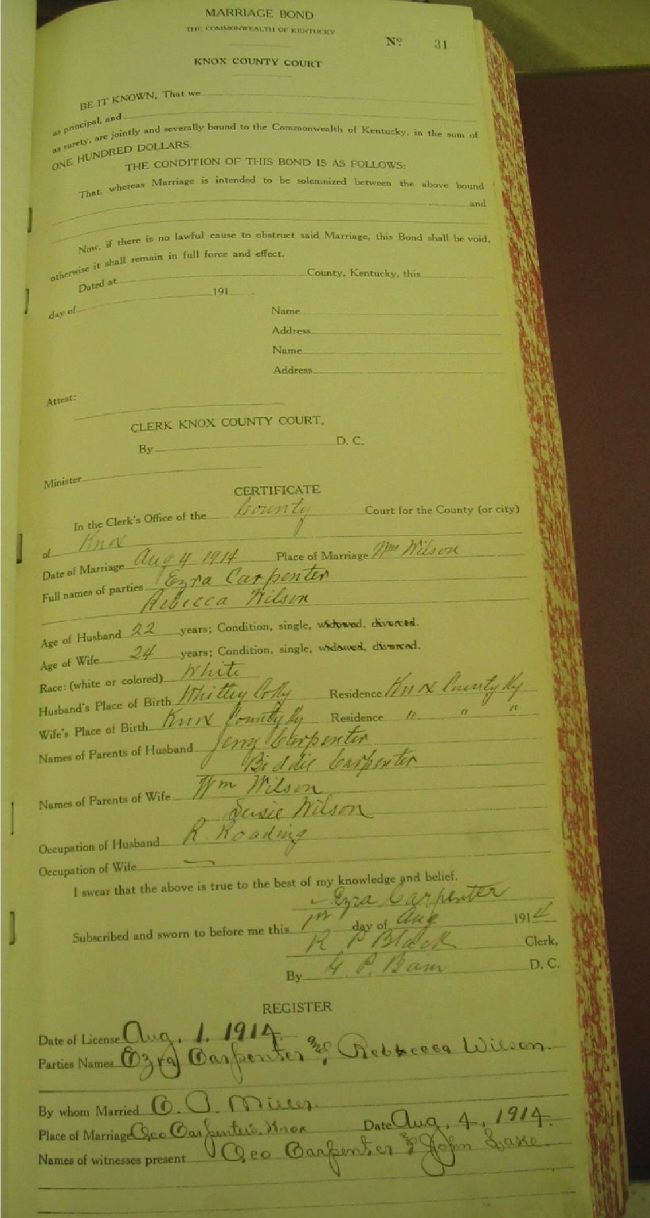 MARRIAGE BOND
THE COMMONWEALTH OF KENTUCKY
No. 31
KNOX COUNTY COURT
BE IT KNOWN, That we
as principal, and
as surety, are jointly and severally bound to the Commonwealth of Kentucky, in the sum of
ONE HUNDRED DOLLARS.
THE CONDITION OF THIS BOND IS AS FOLLOWS:
That, whereas Marriage is intended to be solemnized between the above bound
and
Now, if there is no lawful cause to obstruct said Marriage, this Bond shall be void,
otherwise it shall remain in full force and effect.
Dated at County, Kentucky, this
day of 191
Name
Address
Name
Address
Attest:
CLERK KNOX COUNTY COURT.
By D. C.
Minister
CERTIFICATE
In the Clerk's Office of the County Court for the County (or city)
of Knox
Date of Marriage Aug 4 1914 Place of Marriage Wm Wilson
Full names of parties Ezra Carpenter
Rebecca Wilson
Age of Husband 22 years; Condition, single, widowed, divorced.
Age of Wife 24 years; Condition, single, widowed, divorced.
Race: (white or colored) White
Husband's Place of Birth Whitley Co Ky Residence Knox County Ky
Wife's Place of Birth Knox County Ky Residence " " "
Names of Parents of Husband Jerry Carpenter
Biddie Carpenter
Names of Parents of Wife Wm Wilson
Wilson
Occupation of Husband R. Roading
Occupation of Wife —
I swear that the above is true to the best of my knowledge and belief.
Ezra Carpenter
Subscribed and sworn to before me this 1st day of Aug 1914
R P Black Clerk,
By D. C.
REGISTER
Date of License Aug. 1. 1914
Parties Names Ezra Carpenter & Rebbecca Wilson
By whom Married Miller
Place of Marriage Geo Carpenter's Knox Date Aug. 4, 1914
Names of witnesses present Geo Carpenter & John